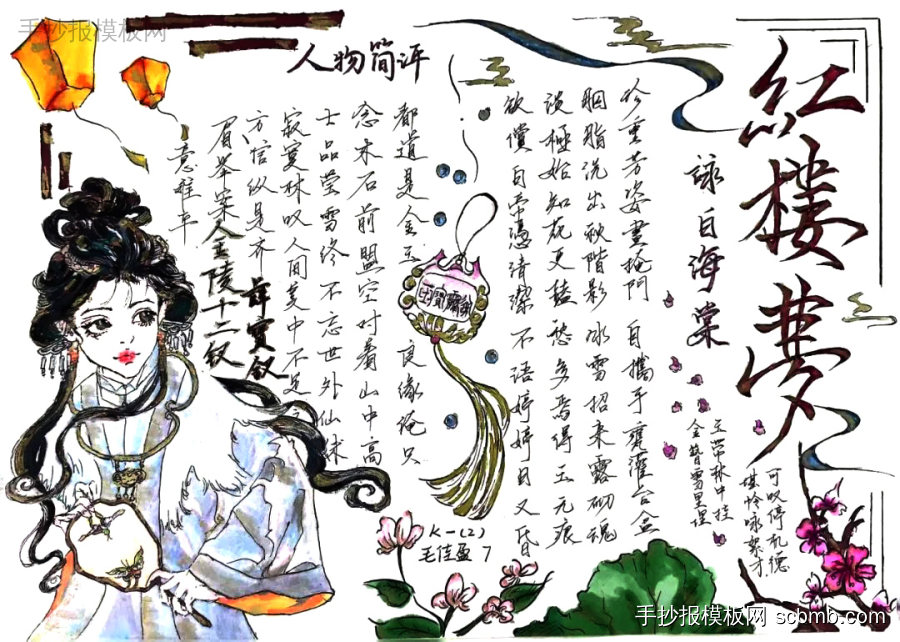 手抄报模板网
紅樓夢
詠白海棠
珍重芳姿晝掩門 自攜手甕灌台盆
胭脂洗出秋階影 冰雪招来露砌魂
淡極始知花更艳 愁多焉得玉无痕
欲償白帝憑清潔 不语婷婷日又昏
可叹停机德
堪怜咏絮才
玉带林中挂
金簪雪里埋
人物简评
都道是金玉良缘俺只
念木石前盟空对着山中高
士晶莹雪终不忘世外仙姝
寂寞林叹人间美中不足
方信纵是齐
眉举案
意难平
薛宝钗
金陵十二钗
K一(2)
毛佳盈 7
手抄报模板网 scbmb.com